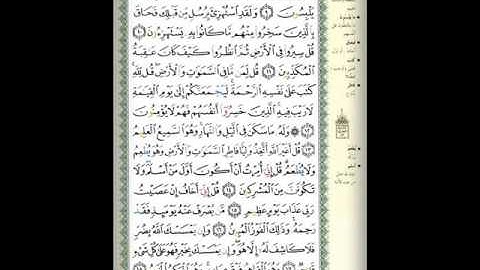 يَلْبِسُونَ ۝٩ وَلَقَدِ ٱسْتُهْزِئَ بِرُسُلٍ مِّن قَبْلِكَ فَحَاقَ
بِٱلَّذِينَ سَخِرُوا۟ مِنْهُم مَّا كَانُوا۟ بِهِۦ يَسْتَهْزِءُونَ ۝١٠
قُلْ سِيرُوا۟ فِى ٱلْأَرْضِ ثُمَّ ٱنظُرُوا۟ كَيْفَ كَانَ عَٰقِبَةُ
ٱلْمُكَذِّبِينَ ۝١١ قُل لِّمَن مَّا فِى ٱلسَّمَٰوَٰتِ وَٱلْأَرْضِ قُل لِّلَّهِ
كَتَبَ عَلَىٰ نَفْسِهِ ٱلرَّحْمَةَ لَيَجْمَعَنَّكُمْ إِلَىٰ يَوْمِ ٱلْقِيَٰمَةِ
لَا رَيْبَ فِيهِ ٱلَّذِينَ خَسِرُوٓا۟ أَنفُسَهُمْ فَهُمْ لَا يُؤْمِنُونَ
۝١٢ وَلَهُۥ مَا سَكَنَ فِى ٱلَّيْلِ وَٱلنَّهَارِ وَهُوَ ٱلسَّمِيعُ ٱلْعَلِيمُ
۝١٣ قُلْ أَغَيْرَ ٱللَّهِ أَتَّخِذُ وَلِيًّا فَاطِرِ ٱلسَّمَٰوَٰتِ وَٱلْأَرْضِ وَهُوَ يُطْعِمُ
وَلَا يُطْعَمُ قُلْ إِنِّىٓ أُمِرْتُ أَنْ أَكُونَ أَوَّلَ مَنْ أَسْلَمَ وَلَا
تَكُونَنَّ مِنَ ٱلْمُشْرِكِينَ ۝١٤ قُلْ إِنِّىٓ أَخَافُ إِنْ عَصَيْتُ
رَبِّى عَذَابَ يَوْمٍ عَظِيمٍ ۝١٥ مَّن يُصْرَفْ عَنْهُ يَوْمَئِذٍ فَقَدْ
رَحِمَهُۥ وَذَٰلِكَ ٱلْفَوْزُ ٱلْمُبِينُ ۝١٦ وَإِن يَمْسَسْكَ ٱللَّهُ بِضُرٍّ
فَلَا كَاشِفَ لَهُۥٓ إِلَّا هُوَ وَإِن يَمْسَسْكَ بِخَيْرٍ فَهُوَ عَلَىٰ كُلِّ شَىْءٍ